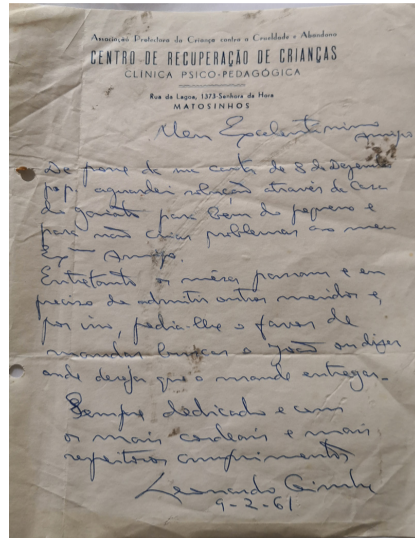 Associação Protectora da Criança contra a Crueldade e Abandono
CENTRO DE RECUPERAÇÃO DE CRIANÇAS
CLINICA PSICO-PEDAGÓGICA
Rua da Lagoa, 1373-Senhora da Hora
MATOSINHOS
Meu Excelentíssimo
Amigo
De posse da sua carta de 8 de Dezembro
p.p. aguardei solução através da Casa
do Gaiato para bem do pequeno e
para não criar problemas ao meu
Exmo Amigo.
Entretanto os mêses passam e eu
preciso de admitir outros meninos e,
por isso, pedia-lhe o favor de
mandar buscar o João ou dizer
onde deseja que o mande entregar.
Sempre dedicado e com
os mais cordeais e mais
respeitosos cumprimentos
Leonardo
9-2-61